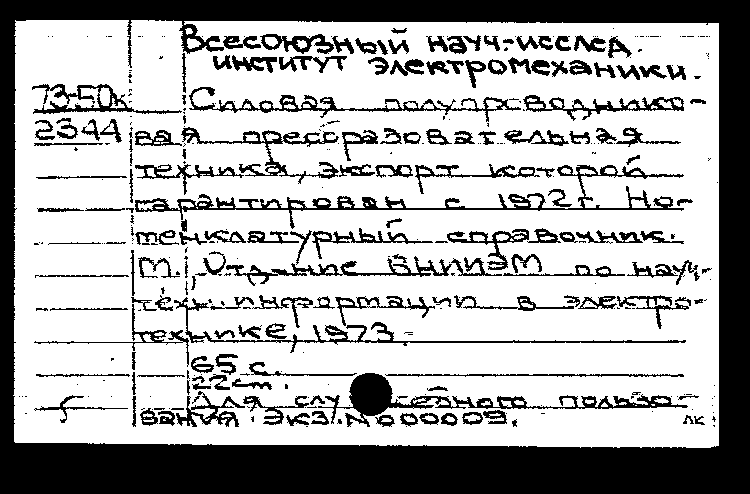 Всесоюзный науч.-исслед.
институт электромеханики.
73-50к Силовая полупроводнико-
2344 вая преобразовательная
техника, экспорт которой
гарантирован с 1972 г. Но-
менклатурный справочник.
М., Отд-ние ВНИИЭМ по науч.-
техн. информации в электро-
технике, 1973.
65 с.
22 см.
Для служебного пользо-
вания. Экз. № 000009.
ЛК